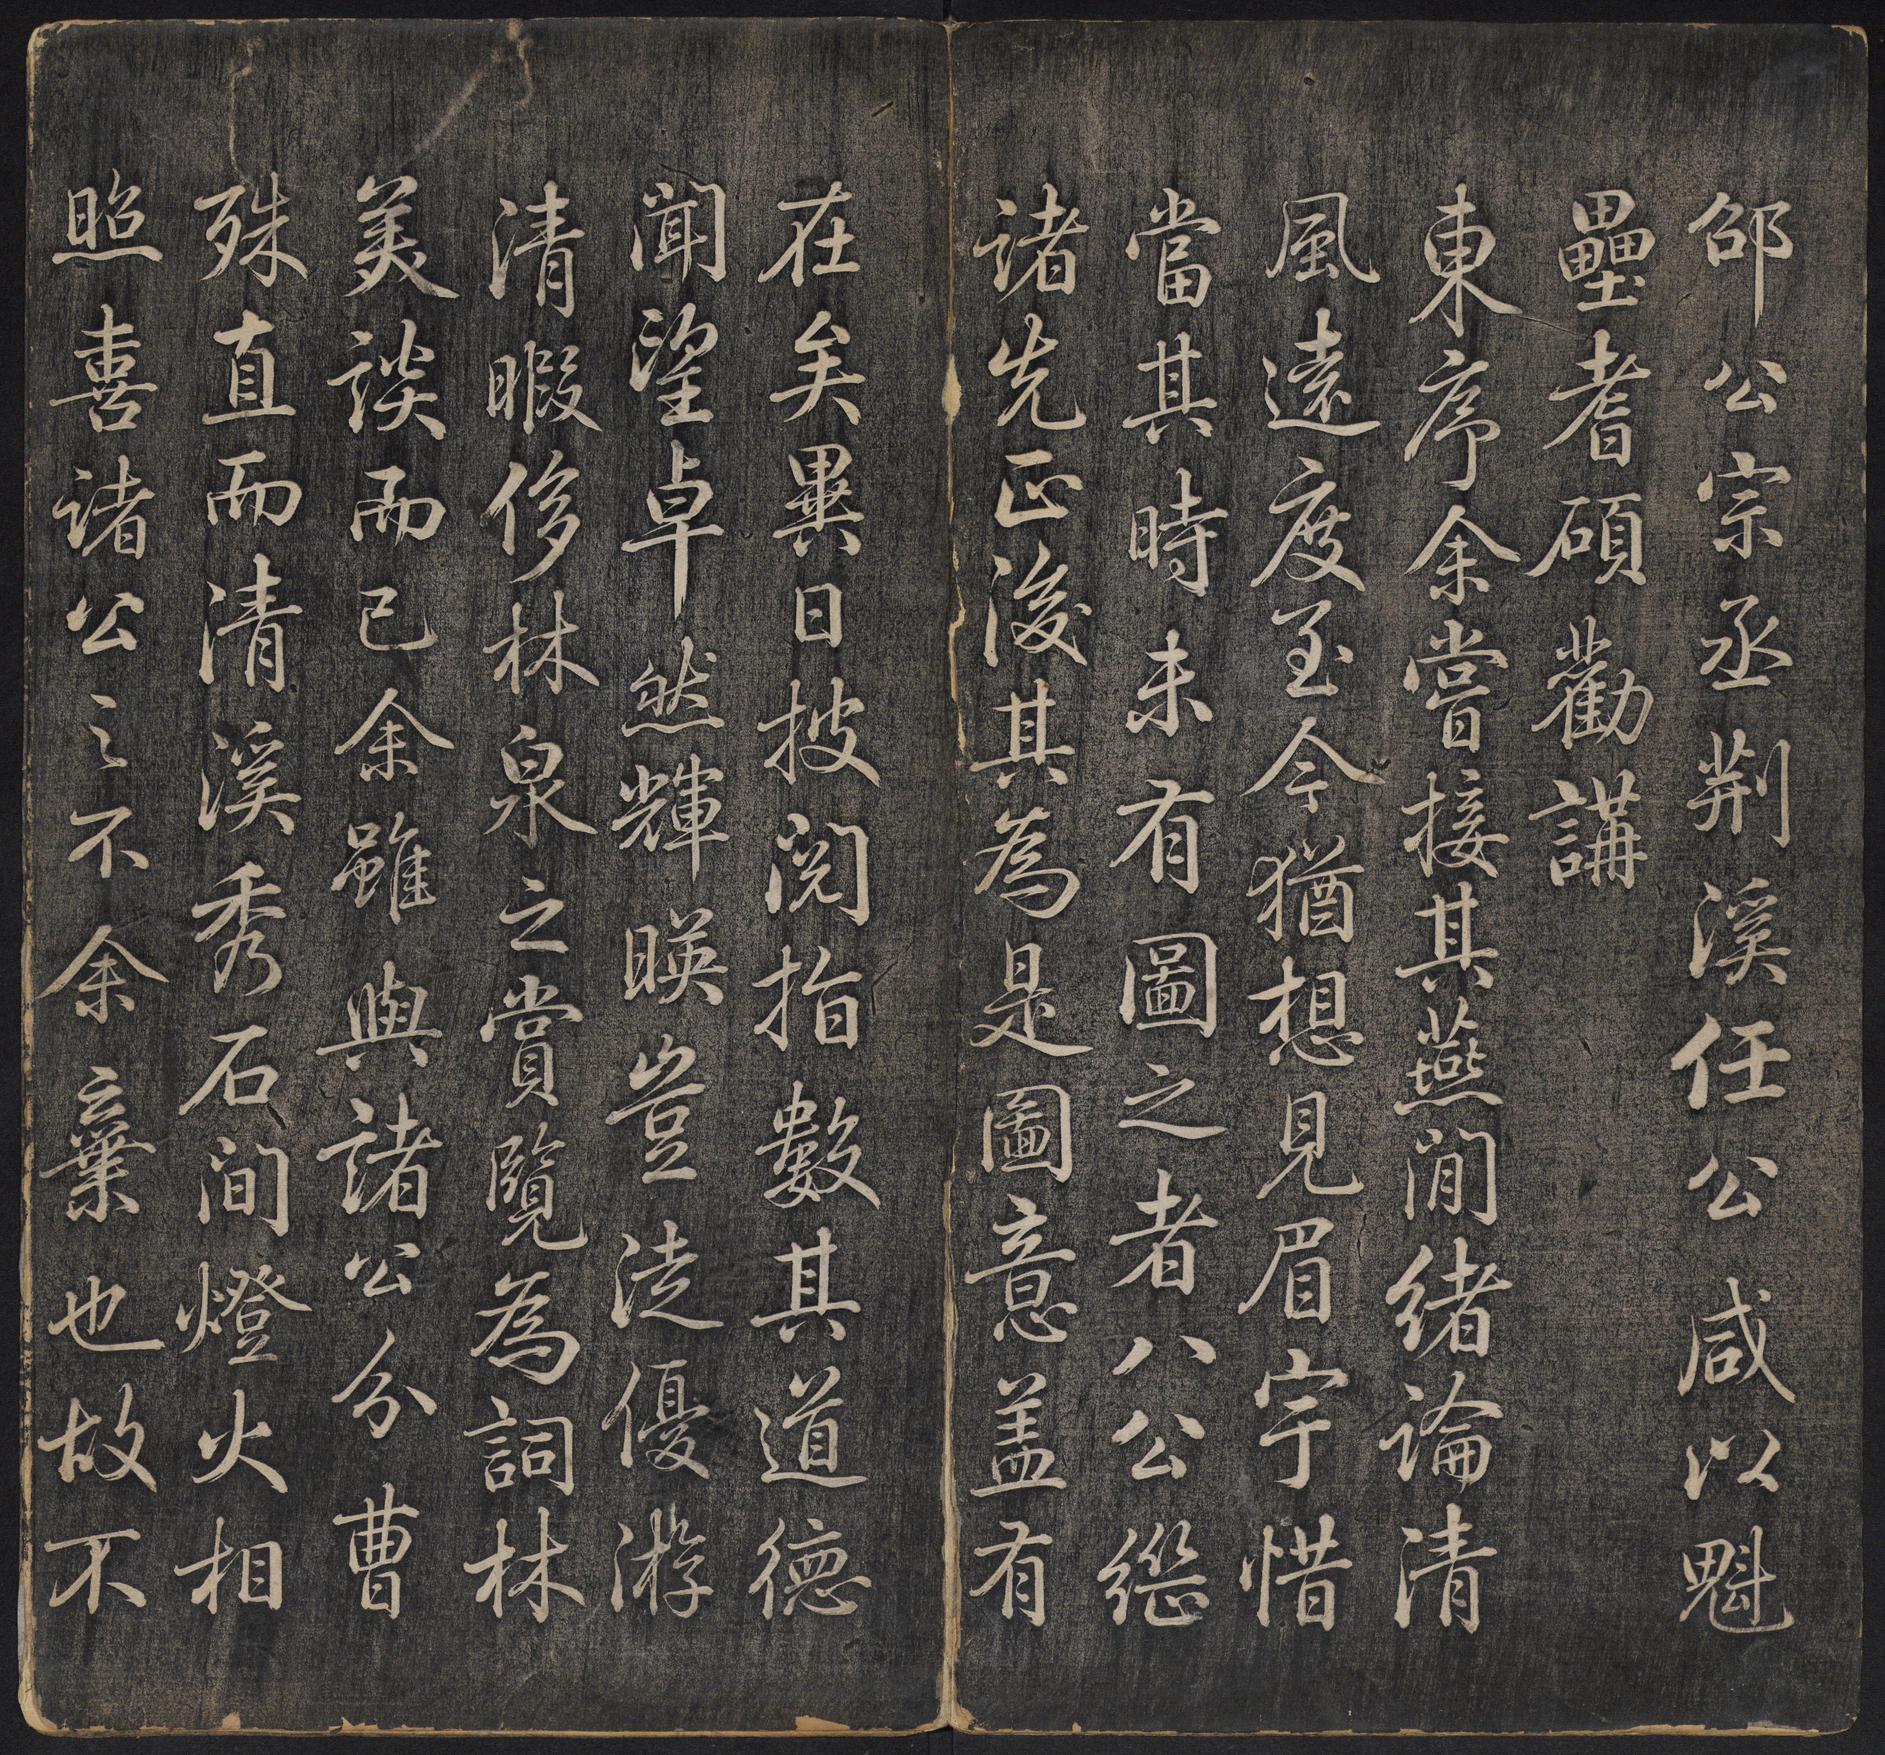 邵公宗丞荆溪任公咸以魁
壘耆碩勸講
東序余嘗接其燕閒緒論清
風遠度至今猶想見眉宇惜
當其時未有圖之者八公繼
諸先正後其為是圖意盖有
在矣異日披閱指數其道德
聞望卓然輝暎豈徒優游
清暇侈林泉之賞覽為詞林
美談而已余雖與諸公分曹
殊直而清溪秀石間燈火相
照喜諸公之不余棄也故不